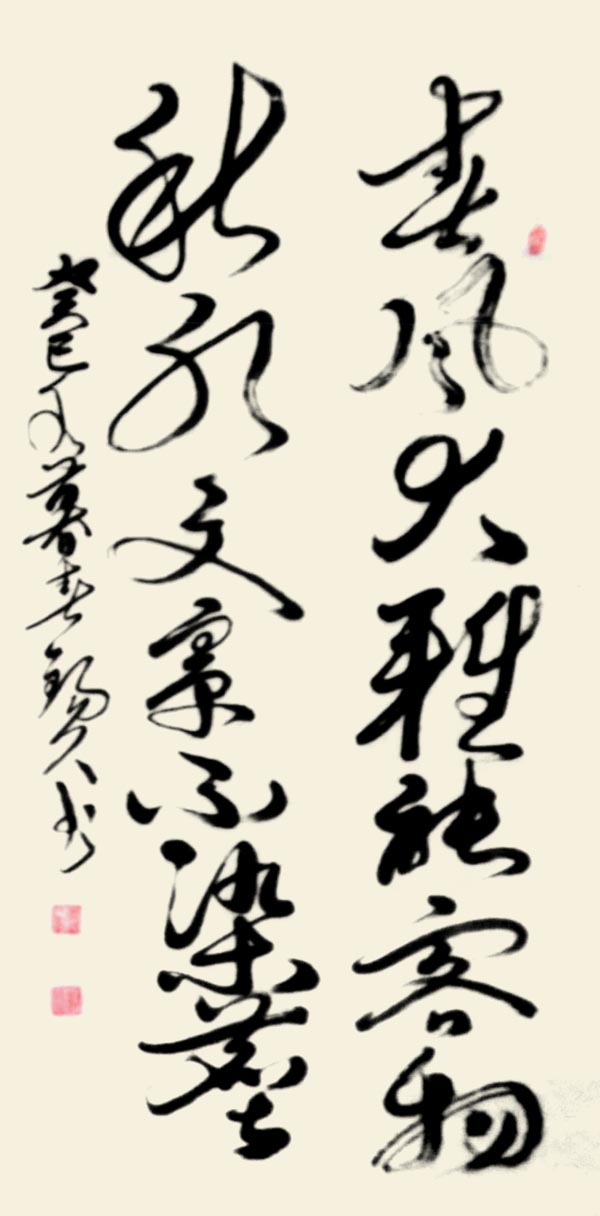 春风大雅能容物
秋水文章不染塵
癸巳年暮春錫久书